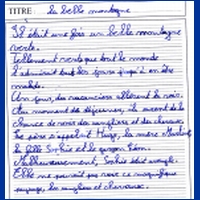 TITRE la belle montagne
Il était une fois un belle montagne
verte.
Tellement verte que tout le monde
l'admirait tout les jours jusqu'à en être
malade.
Un jour, des vacanciers allèrent la voir.
Au moment de déjeuner, il eurent de la
chance de voir des sangliers et des chevaux.
Le père s'appelait Hugo, la mère
la fille Sophie et le garçon
Malheureusement, Sophie était aveugle.
Elle ne pouvait pas voir ce magnifique
paysage, les sangliers et chevaux.